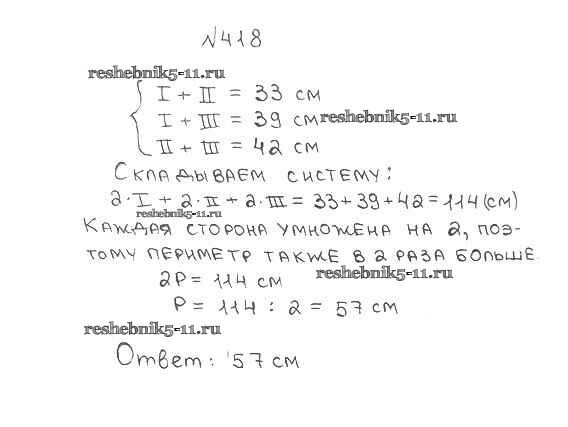 №418
reshebnik5-11.ru
I + II = 33 см
I + III = 39 см reshebnik5-11.ru
II + III = 42 см
Складываем систему:
2·I + 2·II + 2·III = 33+39+42=114(см)
reshebnik5-11.ru
Каждая сторона умножена на 2, поэ-
тому периметр также в 2 раза больше.
2P = 114 см reshebnik5-11.ru
P = 114 : 2 = 57 см
reshebnik5-11.ru
Ответ: 57 см